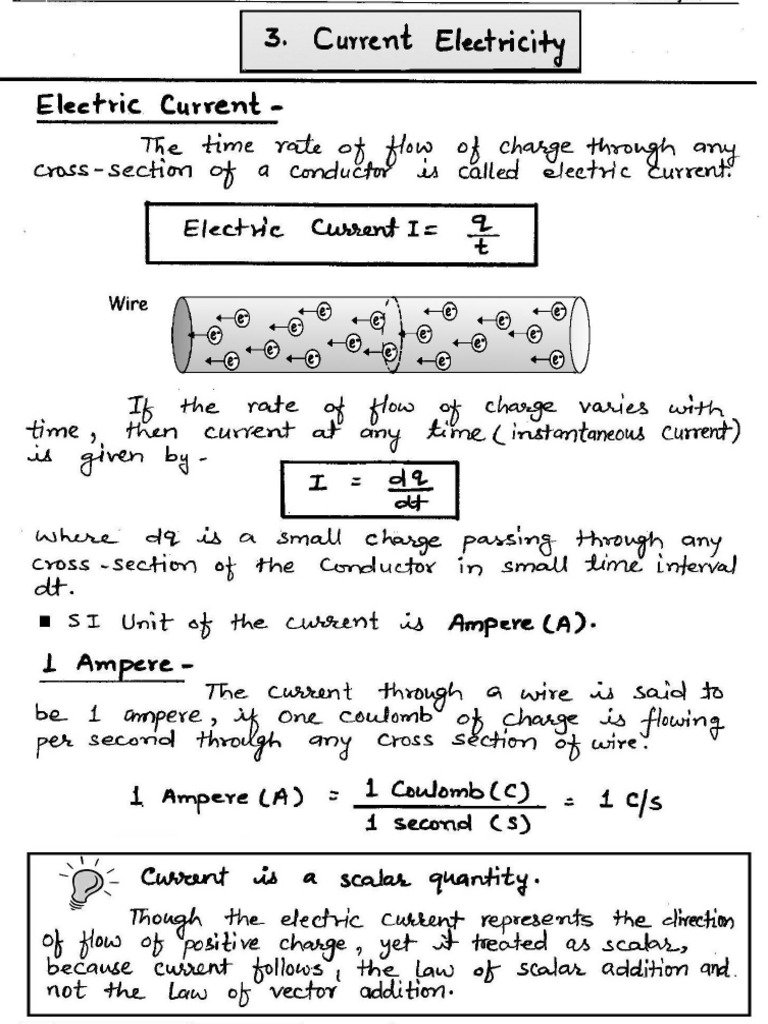 3. Current Electricity
Electric Current -
The time rate of flow of charge through any
cross-section of a conductor is called electric current.
Electric Current I = q/t
Wire
e⁻ e⁻ e⁻ e⁻ e⁻ e⁻ e⁻
e⁻ e⁻ e⁻
e⁻ e⁻ e⁻ e⁻ e⁻
e⁻ e⁻ e⁻ e⁻
If the rate of flow of charge varies with
time, then current at any time (instantaneous current)
is given by -
I = dq/dt
where dq is a small charge passing through any
cross-section of the Conductor in small time interval
dt.
■ SI Unit of the current is Ampere (A).
1 Ampere -
The current through a wire is said to
be 1 ampere, if one coulomb of charge is flowing
per second through any cross section of wire.
1 Ampere (A) = 1 Coulomb (C) / 1 second (S) = 1 C/s
Current is a scalar quantity.
Though the electric current represents the direction
of flow of positive charge, yet it treated as scalar,
because current follows, the law of scalar addition and
not the Law of vector addition.